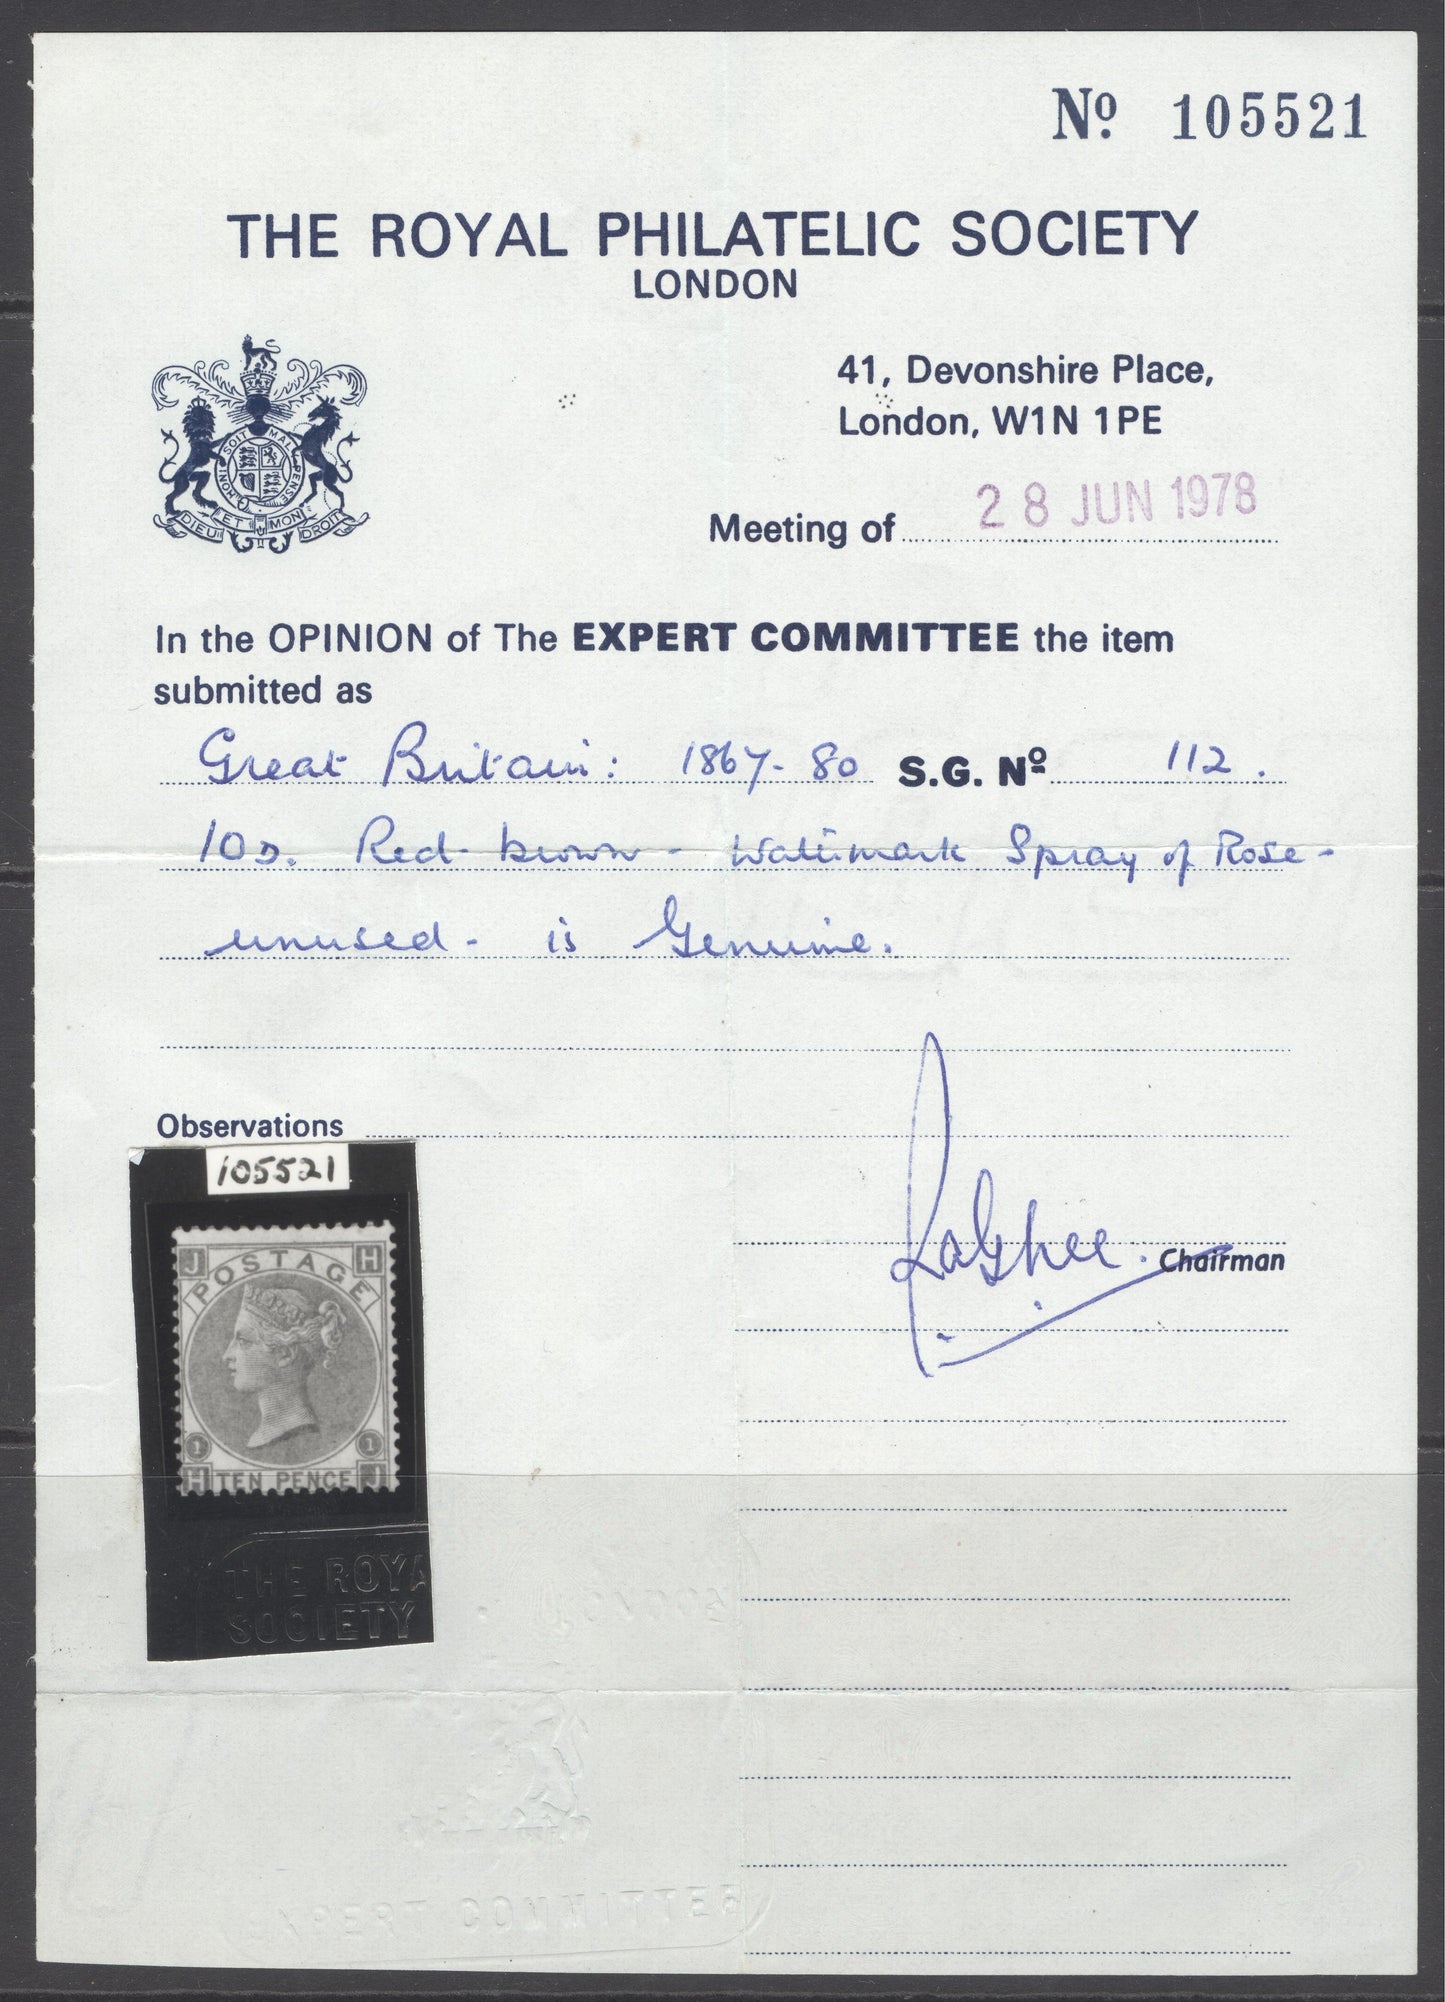 Nº 105521
THE ROYAL PHILATELIC SOCIETY
LONDON
41, Devonshire Place,
London, W1N 1PE
SOIT
MAL
PENSE
HONI
DIEU ET MON DROIT
Meeting of 28 JUN 1978
In the OPINION of The EXPERT COMMITTEE the item
submitted as
Great Britain: 1867-80 S.G. Nº 112.
10d. Red-brown - Watermark Spray of Rose -
unused - is Genuine.
Observations
105521
J H
POSTAGE
1 1
H TEN PENCE J
Chairman
THE ROYA
SOCIETY
XPERT COMMITTEE